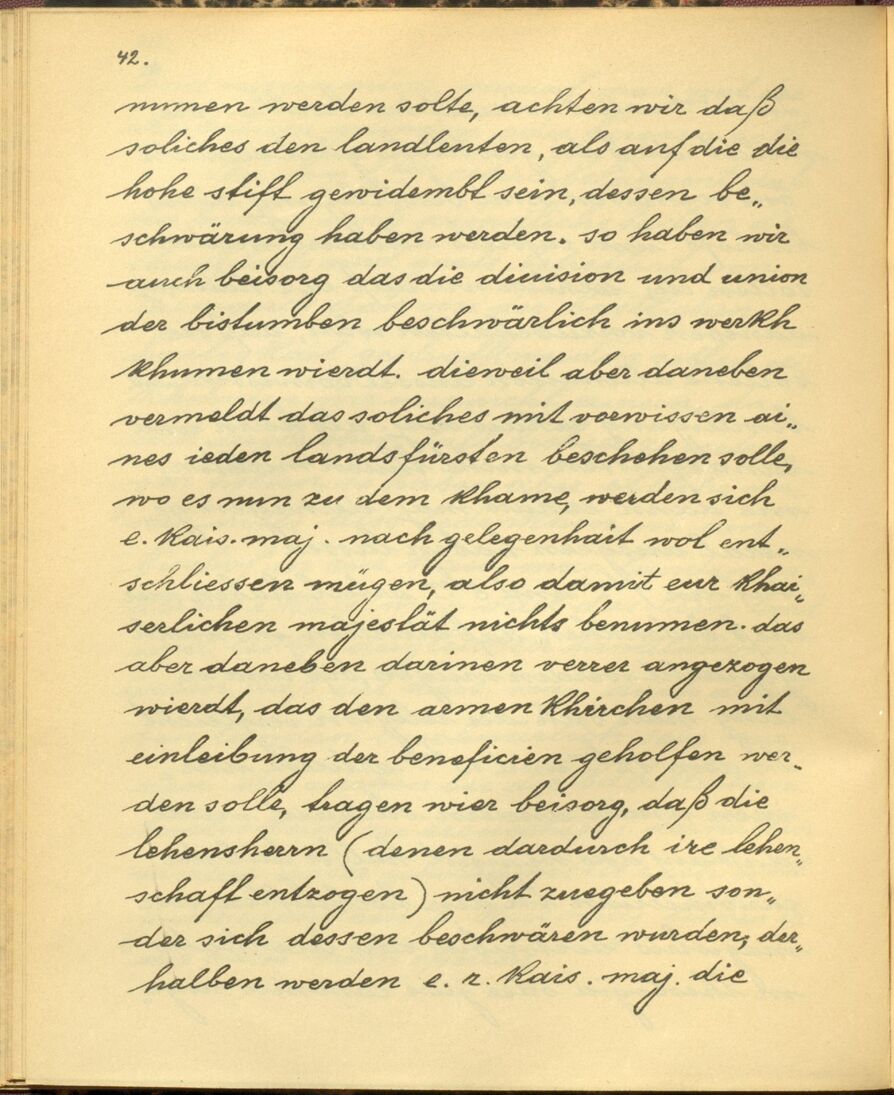 42.
numen werden solte, achten wir daß
soliches den landleuten, als auf die die
hohe stift gewidembt sein, dessen be„
schwärung haben werden. so haben wir
auch beisorg das die diuision und union
der bistumben beschwärlich ins werkh
khumen wierdt. dieweil aber daneben
vermeldt das soliches mit vorwissen ai„
nes ieden landsfürsten beschehen solle,
wo es nun zu dem khame, werden sich
e. kais. maj. nach gelegenhait wol ent„
schliessen mügen, also damit eur khai„
serlichen majestät nichts benumen. das
aber daneben darinen verrer angezogen
wierdt, das den armen khirchen mit
einleibung der beneficien geholfen wer„
den solle, tragen wier beisorg, daß die
lehensherrn (denen dardurch ire lehen„
schaft entzogen) nicht zuegeben son„
der sich dessen beschwären wurden; der„
halben werden e. r. kais. maj. die